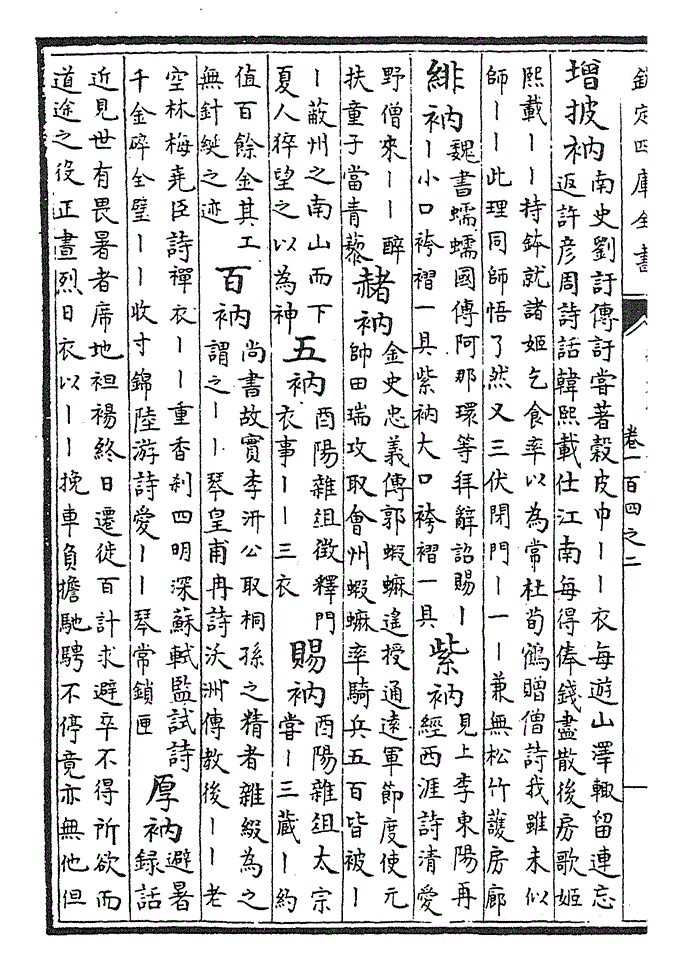 欽定四庫全書
卷一百四之二
增披衲南史劉訏傳訏嘗著穀皮巾丨丨衣每遊山澤輒留連忘
返許彦周詩話韓熙載仕江南每得俸錢盡散後房歌姬
熙載丨丨持鉢就諸姬乞食率以為常杜荀鶴贈僧詩我雖未似
師丨丨此理同師悟了然又三伏閉門丨一丨兼無松竹護房廊
緋衲魏書蠕蠕國傳阿那環等拜辭詔賜丨
丨小口袴褶一具紫衲大口袴褶一具
紫衲見上李東陽再
經西涯詩清愛
野僧來丨丨醉
扶童子當青藜
赭衲金史忠義傳郭蝦蟆遙授通遠軍節度使元
帥田瑞攻取會州蝦蟆率騎兵五百皆被丨
丨蔽州之南山而下
夏人猝望之以為神
五衲酉陽雜俎徵釋門
衣事丨丨三衣
賜衲酉陽雜俎太宗
嘗丨三藏丨約
值百餘金其工
無針綖之迹
百衲尚書故實李汧公取桐孫之精者雜綴為之
謂之丨丨琴皇甫冉詩沃洲傳教後丨丨老
空林梅堯臣詩禪衣丨丨重香刹四明深蘇軾監試詩
千金碎全璧丨丨收寸錦陸游詩愛丨丨琴常鎖匣
厚衲避暑
録話
近見世有畏暑者席地袒裼終日遷徙百計求避卒不得所欲而
道途之役正晝烈日衣以丨丨挽車負擔馳騁不停竟亦無他但